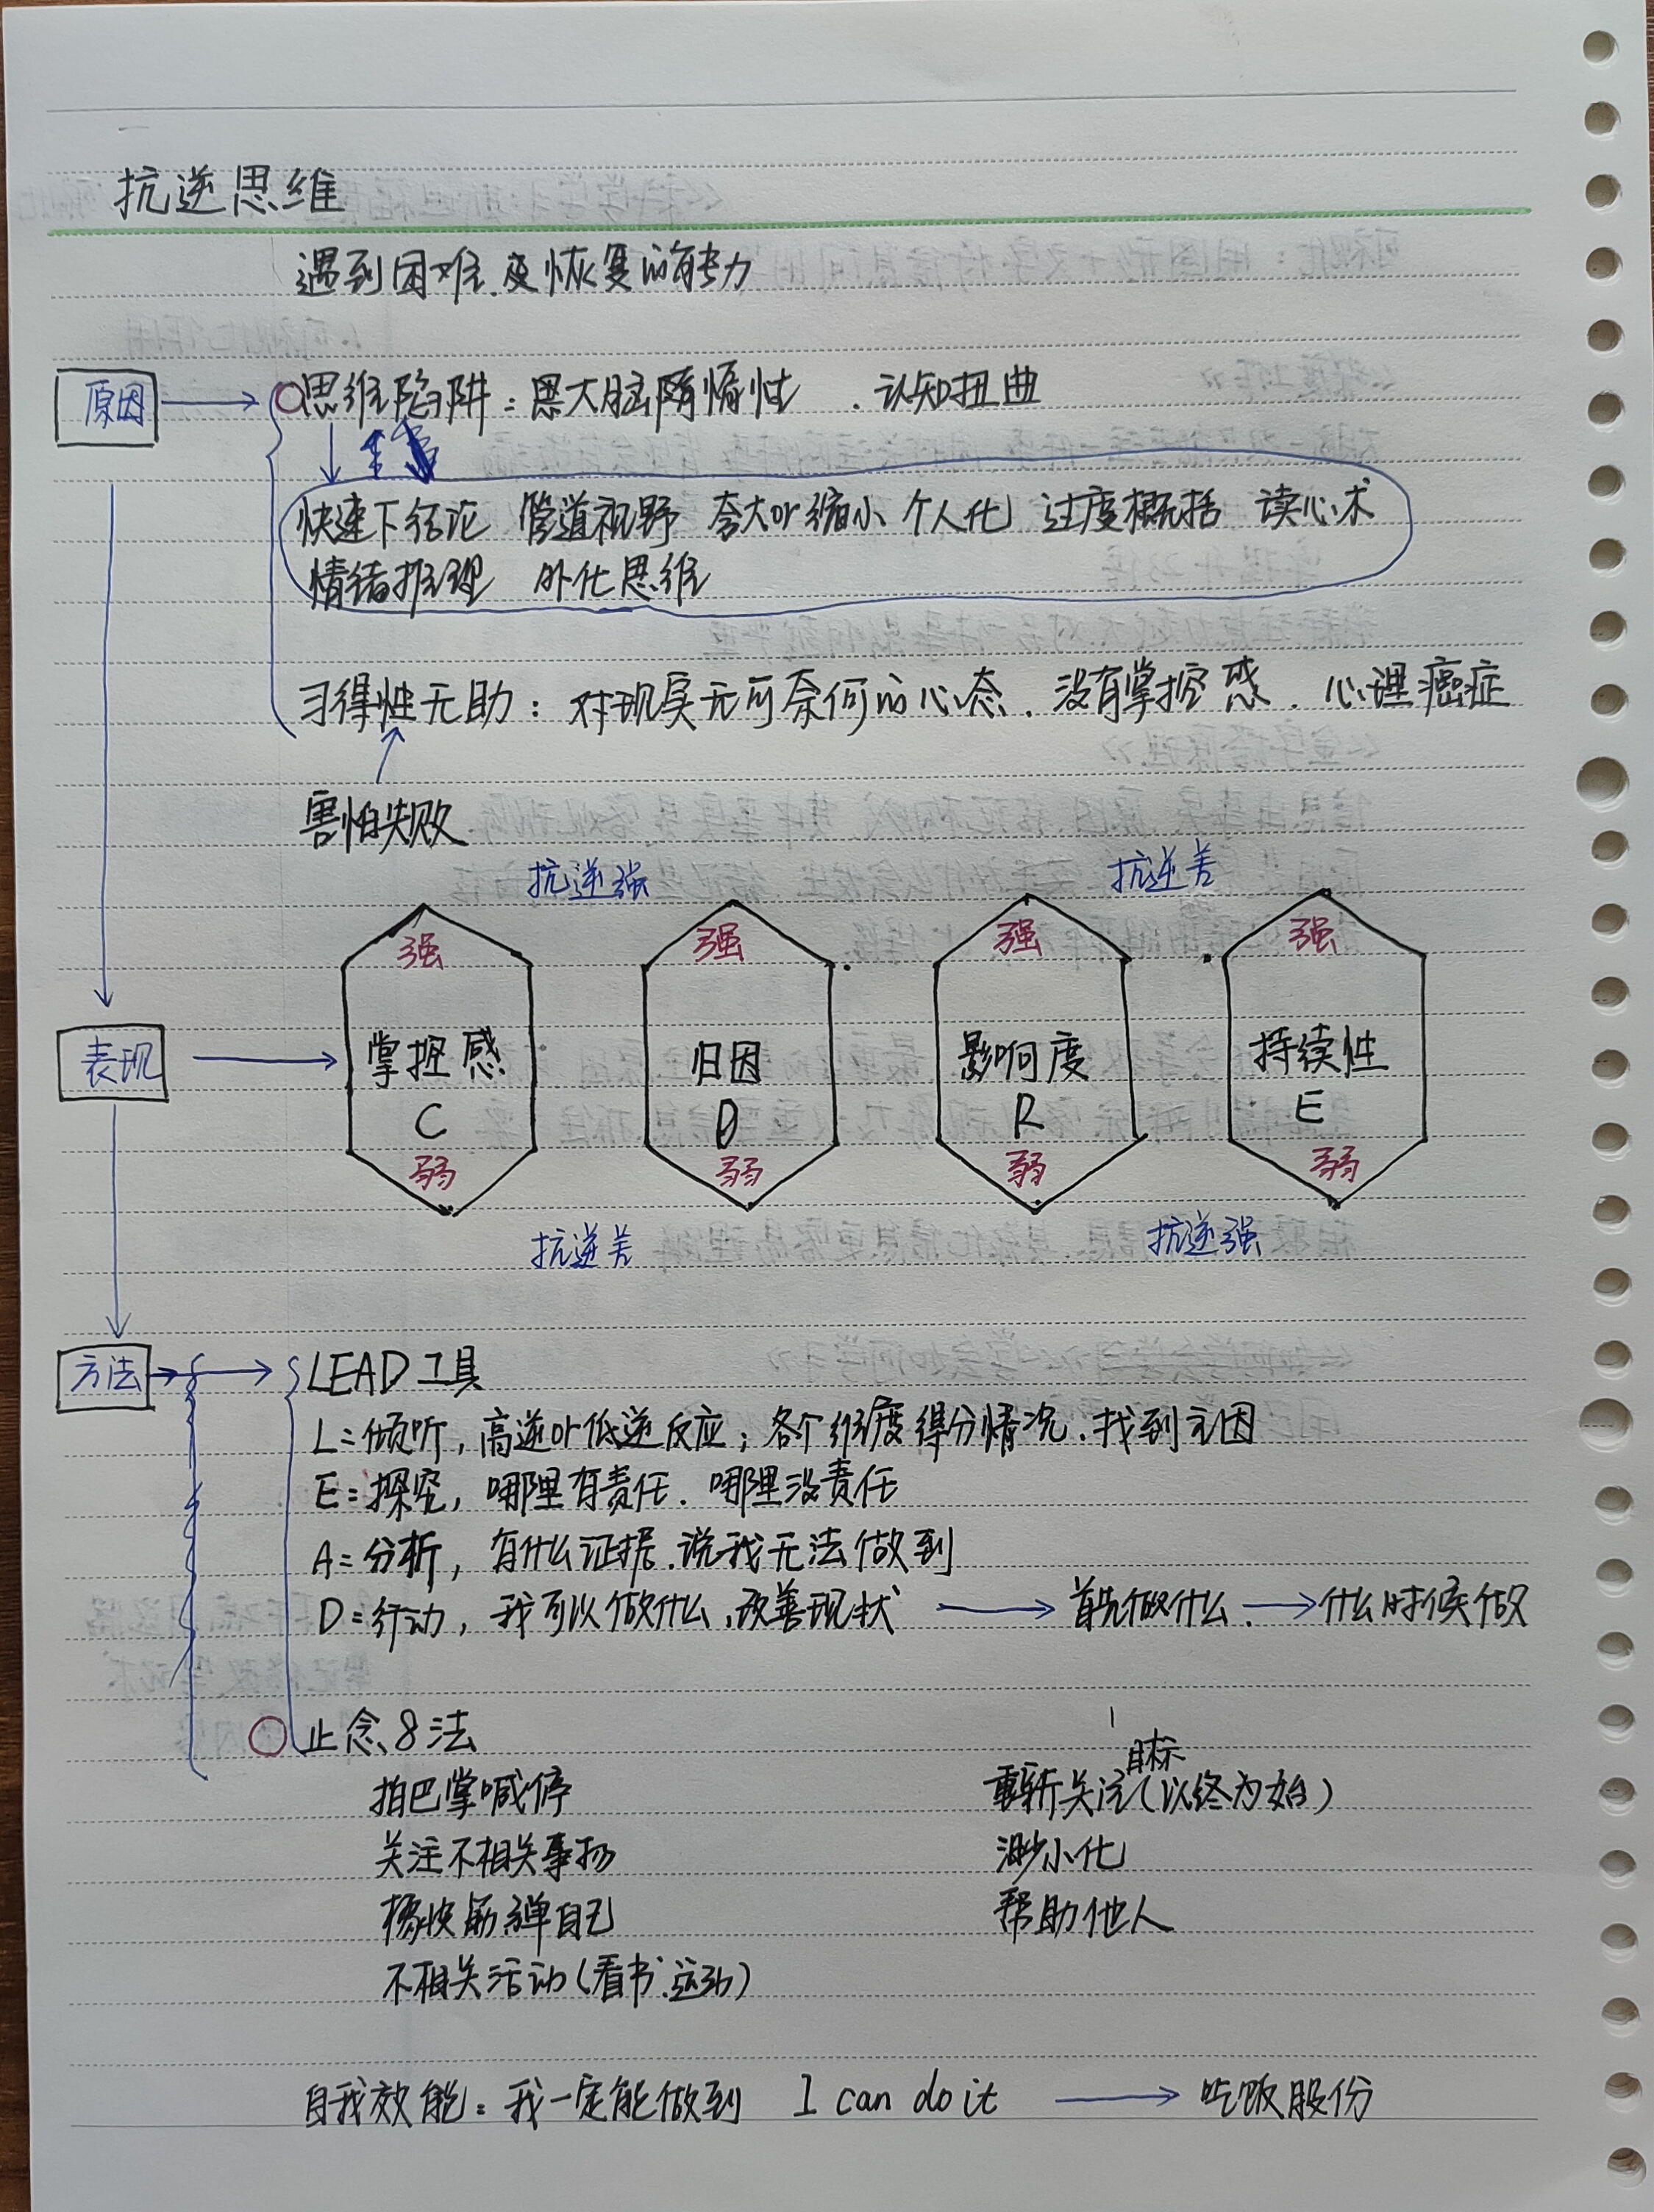 抗逆思维
遇到困难.及恢复的能力
原因
思维陷阱：因大脑惰性 . 认知扭曲
快速下结论 管道视野 夸大or缩小 个人化 过度概括 读心术
情绪推理 外化思维
习得性无助：对现实无可奈何的心态. 没有掌控感. 心理癌症
害怕失败
抗逆强 抗逆差
强 强 强 强
表现
掌控感 归因 影响度 持续性
C D R E
弱 弱 弱 弱
抗逆差 抗逆强
方法
LEAD工具
L=倾听，高逆or低逆反应；各个维度得分情况.找到主因
E=探究，哪里有责任. 哪里没责任
A=分析，有什么证据.说我无法做到
D=行动，我可以做什么.改善现状 首先做什么. 什么时候做
止念8法
目标
拍巴掌喊停 重新关注(以终为始)
关注不相关事物 渺小化
橡皮筋弹自己 帮助他人
不相关活动(看书.运动)
自我效能：我一定能做到 I can do it 吃饭股份